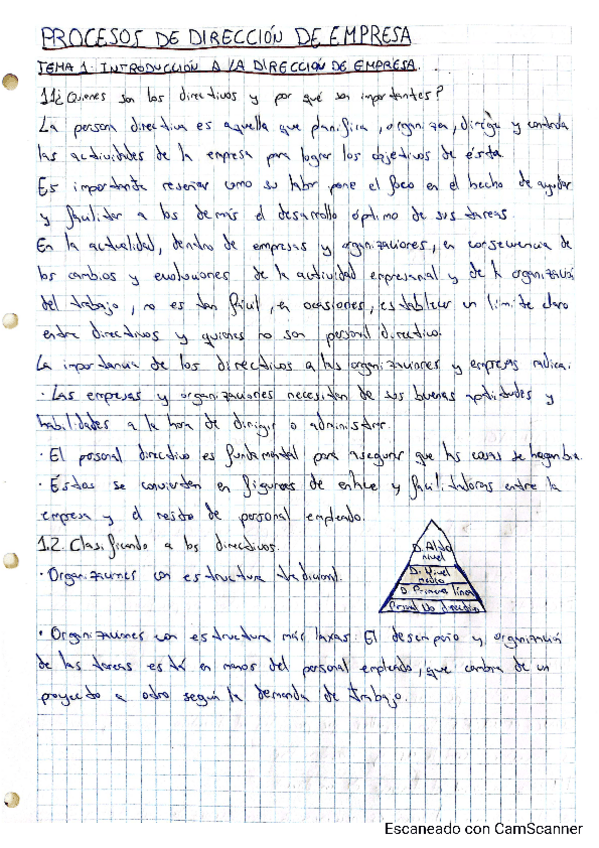 PROCESOS DE DIRECCIÓN DE EMPRESA
TEMA 1. INTRODUCCIÓN A LA DIRECCIÓN DE EMPRESA.
1.1 ¿Quienes son los directivos y por qué son importantes?
La persona directiva es aquella que planifica, organiza, dirige y controla
las actividades de la empresa para lograr los objetivos de ésta.
Es importante reseñar como su labor pone el foco en el hecho de ayudar
y facilitar a los demás el desarrollo óptimo de sus tareas.
En la actualidad, dentro de empresas y organizaciones, en consecuencia de
los cambios y evoluciones de la actividad empresarial y de la organización
del trabajo, no es tan fácil, en ocasiones, establecer un límite claro
entre directivos y quienes no son personal directivo.
La importancia de los directivos a las organizaciones y empresas radica:
· Las empresas y organizaciones necesitan de sus buenas aptitudes y
habilidades a la hora de dirigir o administrar.
· El personal directivo es fundamental para asegurar que las cosas se hagan bien.
· Éstas se convierten en figuras de enlace y facilitadoras entre la
empresa y el resto de personal empleado.
1.2. Clasificando a los directivos.
· Organizaciones con estructura tradicional.
D. Alto
nivel
D. Nivel
medio
D. Primera línea
Personal No directivo
· Organizaciones con estructura más laxas: El desempeño y organización
de las tareas está en manos del personal empleado, que cambia de un
proyecto a otro según la demanda de trabajo.
Escaneado con CamScanner